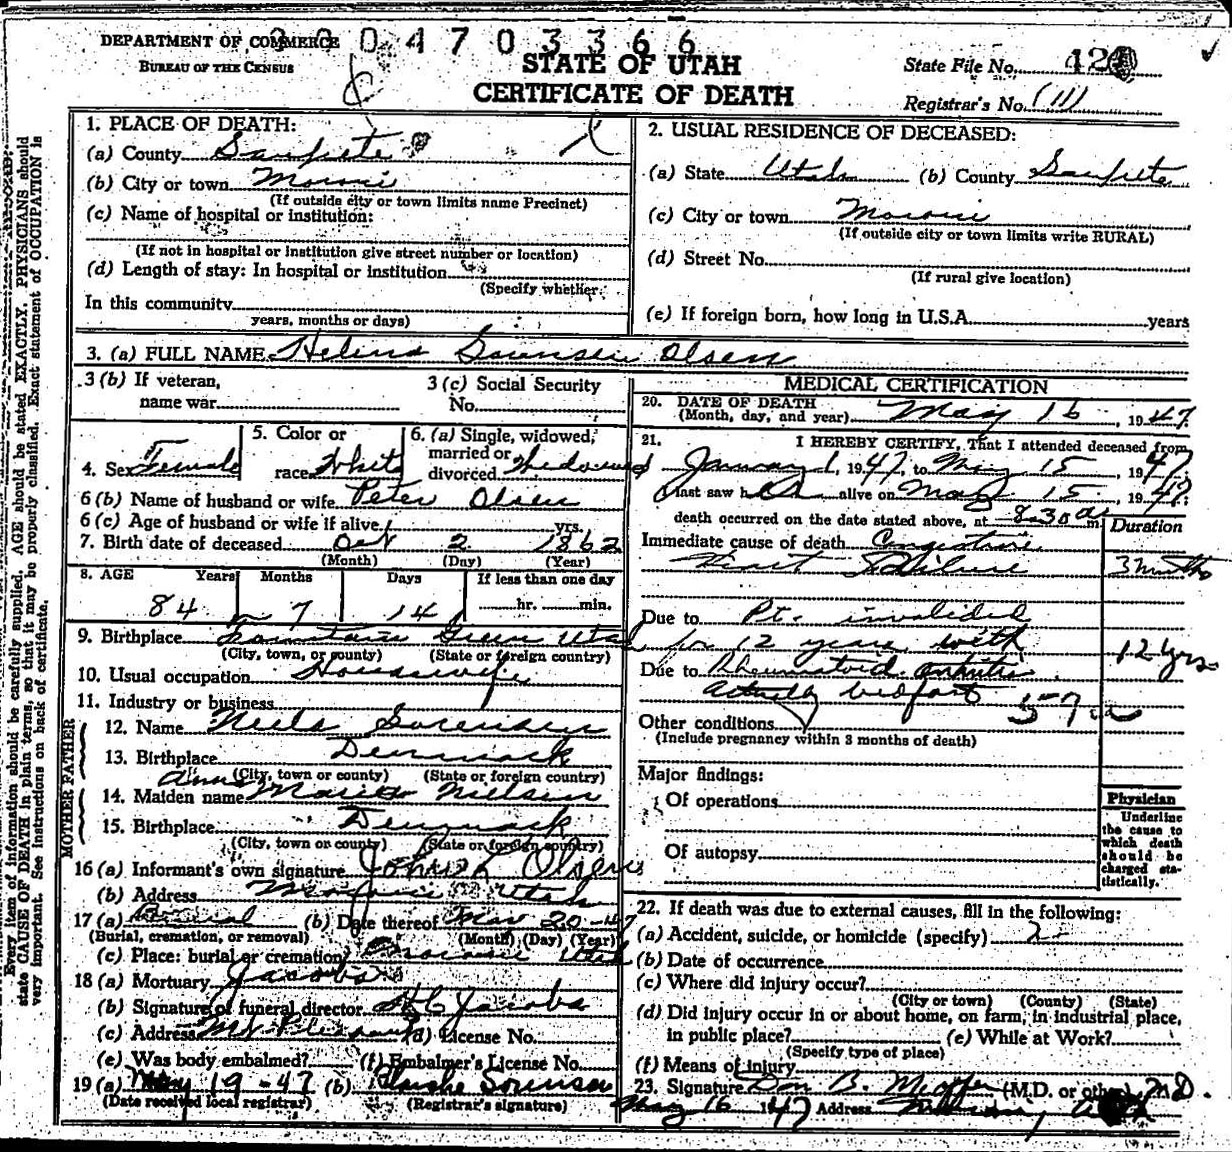 DEPARTMENT OF COMMERCE
BUREAU OF THE CENSUS
0 0 4 7 0 3 3 6 6
STATE OF UTAH
CERTIFICATE OF DEATH
State File No. 42
Registrar's No. (11)
Every item of information should be carefully supplied. AGE should be stated EXACTLY. PHYSICIANS should
state CAUSE OF DEATH in plain terms, so that it may be properly classified. Exact statement of OCCUPATION is
very important. See instructions on back of certificate.
1. PLACE OF DEATH:
(a) County Sanpete
(b) City or town Moroni
(If outside city or town limits name Precinct)
(c) Name of hospital or institution:
(If not in hospital or institution give street number or location)
(d) Length of stay: In hospital or institution
(Specify whether
In this community
years, months or days)
2. USUAL RESIDENCE OF DECEASED:
(a) State Utah (b) County Sanpete
(c) City or town Moroni
(If outside city or town limits write RURAL)
(d) Street No.
(If rural give location)
(e) If foreign born, how long in U.S.A. years
3. (a) FULL NAME Helena Sorensen Olsen
3 (b) If veteran,
name war
3 (c) Social Security
No.
4. Sex Female
5. Color or
race White
6. (a) Single, widowed,
married or
divorced Widowed
6 (b) Name of husband or wife Peter Olsen
6 (c) Age of husband or wife if alive yrs.
7. Birth date of deceased Oct 2 1862
(Month) (Day) (Year)
8. AGE Years Months Days If less than one day
84 7 14 hr. min.
9. Birthplace Fountain Green Utah
(City, town, or county) (State or foreign country)
10. Usual occupation Housewife
11. Industry or business
FATHER
12. Name Niels Sorensen
13. Birthplace Denmark
(City, town or county) (State or foreign country)
MOTHER
14. Maiden name Anna Marie Nielsen
15. Birthplace Denmark
(City, town or county) (State or foreign country)
16 (a) Informant's own signature John L Olsen
(b) Address Moroni Utah
17 (a) Burial (b) Date thereof May 20-47
(Burial, cremation, or removal) (Month) (Day) (Year)
(c) Place: burial or cremation Moroni Utah
18 (a) Mortuary Jacobs
(b) Signature of funeral director Jacobs
(c) Address Mt Pleasant (d) License No.
(e) Was body embalmed? (f) Embalmer's License No.
19 (a) May 19-47 (b) Sorensen
(Date received local registrar) (Registrar's signature)
MEDICAL CERTIFICATION
20. DATE OF DEATH
(Month, day, and year) May 16, 1947
21. I HEREBY CERTIFY, That I attended deceased from
January 1, 1947, to May 15 1947
I last saw her alive on May 15 1947
death occurred on the date stated above, at 8:30 a m. Duration
Immediate cause of death Congestive
Heart Failure 3 months
Due to Pt. invalided
for 12 years with 12 yrs
Due to Rheumatoid arthritis.
Actually bedfast 57a
Other conditions
(Include pregnancy within 3 months of death)
Major findings:
Of operations
Of autopsy
Physician
Underline
the cause to
which death
should be
charged sta-
tistically.
22. If death was due to external causes, fill in the following:
(a) Accident, suicide, or homicide (specify)
(b) Date of occurrence
(c) Where did injury occur?
(City or town) (County) (State)
(d) Did injury occur in or about home, on farm, in industrial place,
in public place? (e) While at Work?
(Specify type of place)
(f) Means of injury
23. Signature Don B. (M.D. or other) M.D.
May 16 1947 Address